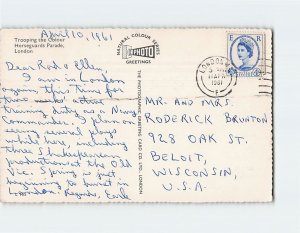 April 10, 1961
Trooping the Colour
Horseguards Parade,
London
NATURAL COLOUR SERIES
PHOTO
GREETINGS
THE PHOTOGRAPHIC GREETING CARD CO. LTD., LONDON
LONDON
11 APR
1961
E R
Dear Rod & Ellis,
I am in London
again this time for
two weeks
training duty as a Navy
Commander. I plan on
seeing several plays
while here, including
three Shakespearean
productions at the Old
Vic. Spring is just
beginning to burst in
London. Regards, Earle
MR. AND MRS.
RODERICK BRUNTON
928 OAK ST.
BELOIT,
WISCONSIN,
U.S.A.